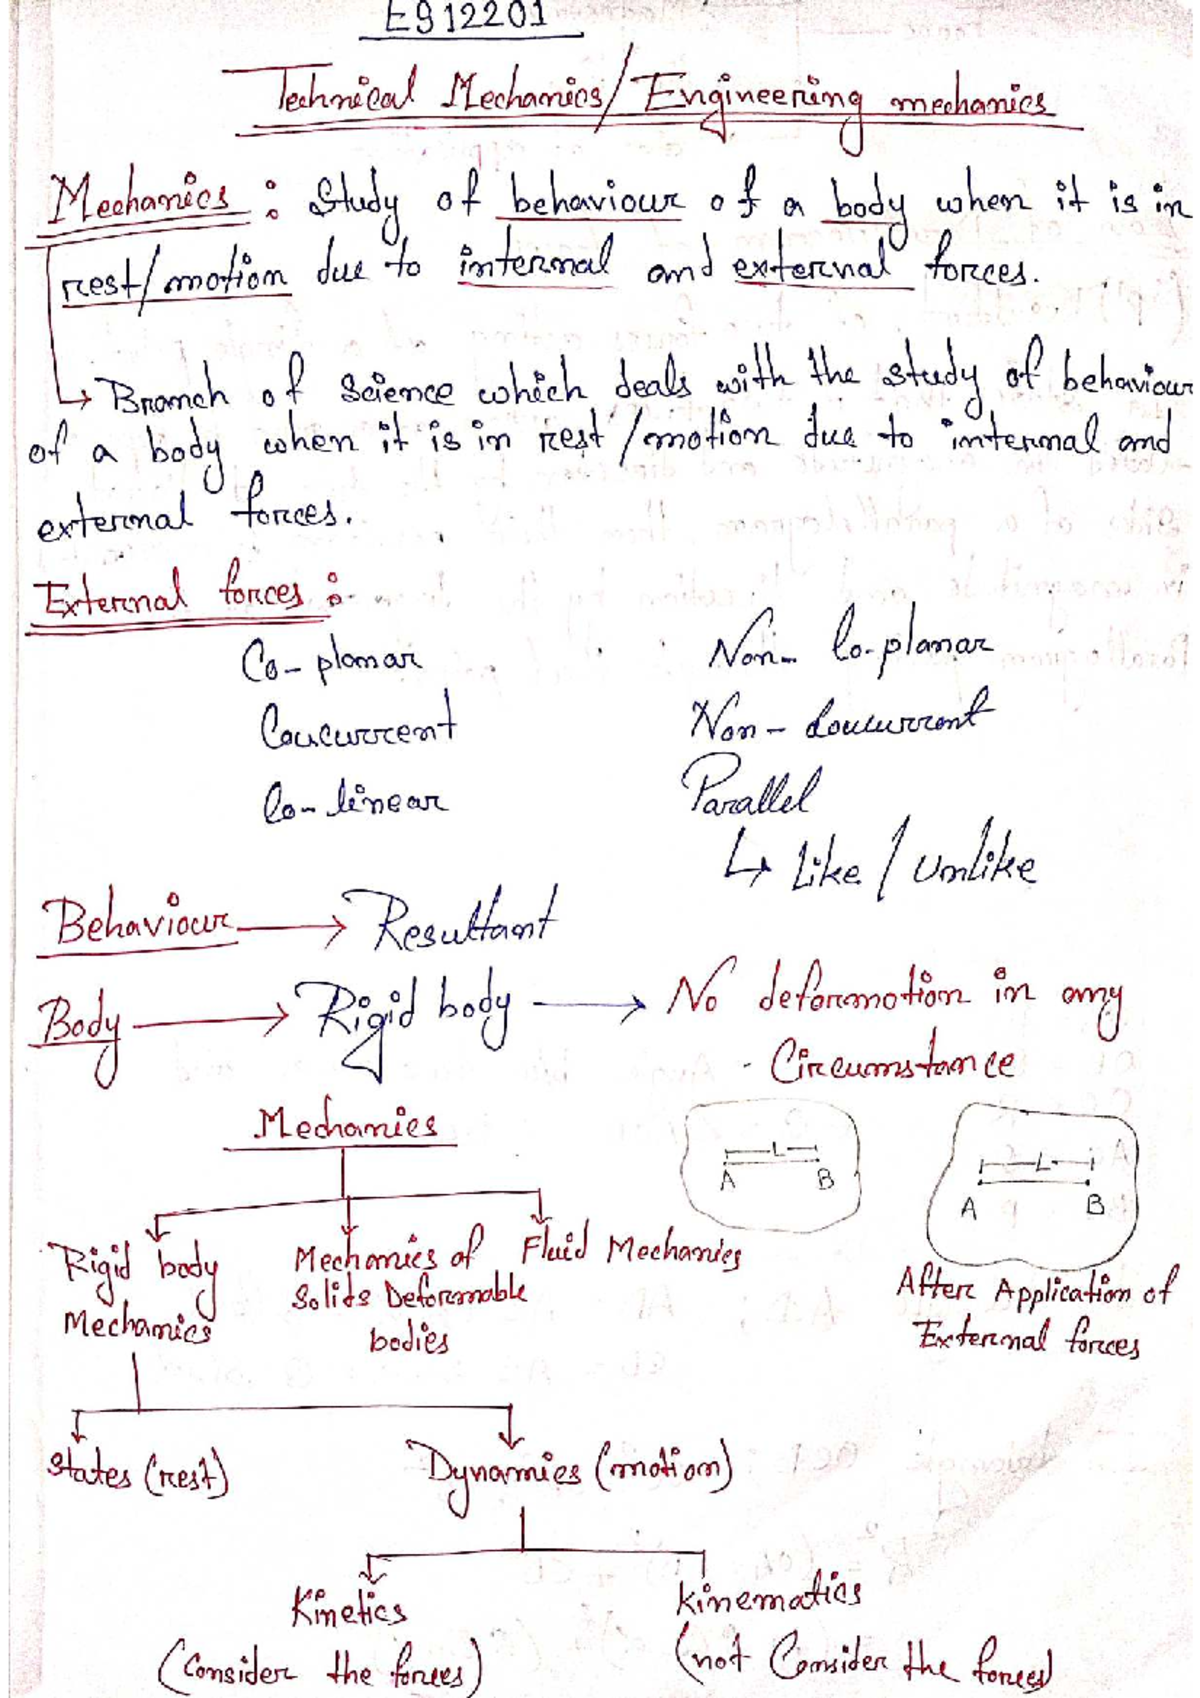 E912201
Technical Mechanics/Engineering mechanics
Mechanics : Study of behaviour of a body when it is in
rest/motion due to internal and external forces.
↳ Branch of Science which deals with the study of behaviour
of a body when it is in rest/motion due to internal and
external forces.
External forces :-
Co-planar Non-Co-planar
Concurrent Non-Concurrent
Co-linear Parallel
↳ Like / Unlike
Behaviour → Resultant
Body → Rigid body → No deformation in any
Circumstance
Mechanics
L
A B
L
A B
Rigid body
Mechanics
Mechanics of
Solids Deformable
bodies
Fluid Mechanics
After Application of
External forces
States (rest) Dynamics (motion)
Kinetics
(Consider the forces)
Kinematics
(not Consider the forces)